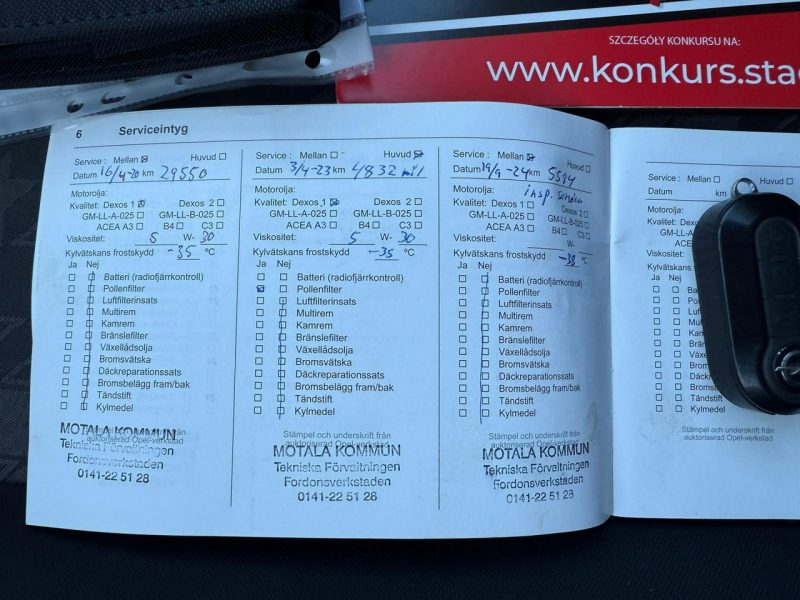 SZCZEGÓŁY KONKURSU NA:
www.konkurs.stad
6 Serviceintyg
Service : Mellan ☒ Huvud ☐
Datum 16/4-20 km 29550
Motorolja:
Kvalitet: Dexos 1 ☒ Dexos 2 ☐
GM-LL-A-025 ☐ GM-LL-B-025 ☐
ACEA A3 ☐ B4 ☐ C3 ☐
Viskositet: 5 W- 30
Kylvätskans frostskydd -35 °C
Ja Nej
☐ ☐ Batteri (radiofjärrkontroll)
☐ ☐ Pollenfilter
☐ ☐ Luftfilterinsats
☐ ☐ Multirem
☐ ☐ Kamrem
☐ ☐ Bränslefilter
☐ ☐ Växellådsolja
☐ ☐ Bromsvätska
☐ ☐ Däckreparationssats
☐ ☐ Bromsbelägg fram/bak
☐ ☐ Tändstift
☐ ☐ Kylmedel
Stämpel och underskrift från
auktoriserad Opel-verkstad
MOTALA KOMMUN
Tekniska Förvaltningen
Fordonsverkstaden
0141-22 51 28
Service : Mellan ☐ Huvud ☒
Datum 3/4-23 km 4832 mil
Motorolja:
Kvalitet: Dexos 1 ☒ Dexos 2 ☐
GM-LL-A-025 ☐ GM-LL-B-025 ☐
ACEA A3 ☐ B4 ☐ C3 ☐
Viskositet: 5 W- 30
Kylvätskans frostskydd -35 °C
Ja Nej
☐ ☐ Batteri (radiofjärrkontroll)
☒ ☐ Pollenfilter
☐ ☐ Luftfilterinsats
☐ ☐ Multirem
☐ ☐ Kamrem
☐ ☐ Bränslefilter
☐ ☐ Växellådsolja
☐ ☐ Bromsvätska
☐ ☐ Däckreparationssats
☐ ☐ Bromsbelägg fram/bak
☐ ☐ Tändstift
☐ ☐ Kylmedel
Stämpel och underskrift från
auktoriserad Opel-verkstad
MOTALA KOMMUN
Tekniska Förvaltningen
Fordonsverkstaden
0141-22 51 28
Service : Mellan ☒ Huvud ☐
Datum 19/9-24 km 5594
Motorolja: insp. service
Kvalitet: Dexos 1 ☐ Dexos 2 ☐
GM-LL-A-025 ☐ GM-LL-B-025 ☐
ACEA A3 ☐ B4 ☐ C3 ☐
Viskositet: W-
Kylvätskans frostskydd -38 °C
Ja Nej
☐ ☐ Batteri (radiofjärrkontroll)
☐ ☐ Pollenfilter
☐ ☐ Luftfilterinsats
☐ ☐ Multirem
☐ ☐ Kamrem
☐ ☐ Bränslefilter
☐ ☐ Växellådsolja
☐ ☐ Bromsvätska
☐ ☐ Däckreparationssats
☐ ☐ Bromsbelägg fram/bak
☐ ☐ Tändstift
☐ ☐ Kylmedel
Stämpel och underskrift från
auktoriserad Opel-verkstad
MOTALA KOMMUN
Tekniska Förvaltningen
Fordonsverkstaden
0141-22 51 28
Service : Mellan ☐ Huvud ☐
Datum km
Motorolja:
Kvalitet: Dexos
GM-LL-A-025
ACEA A3
Viskositet:
Kylvätskans fros
Ja Nej
☐ ☐ Ba
☐ ☐ Po
☐ ☐ Luf
☐ ☐ Mu
☐ ☐ Ka
☐ ☐ Brä
☐ ☐ Väx
☐ ☐ Bron
☐ ☐ Däck
☐ ☐ Broms
☐ ☐ Tänds
☐ ☐ Kylmedel
Stämpel och underskrift från
auktoriserad Opel-verkstad